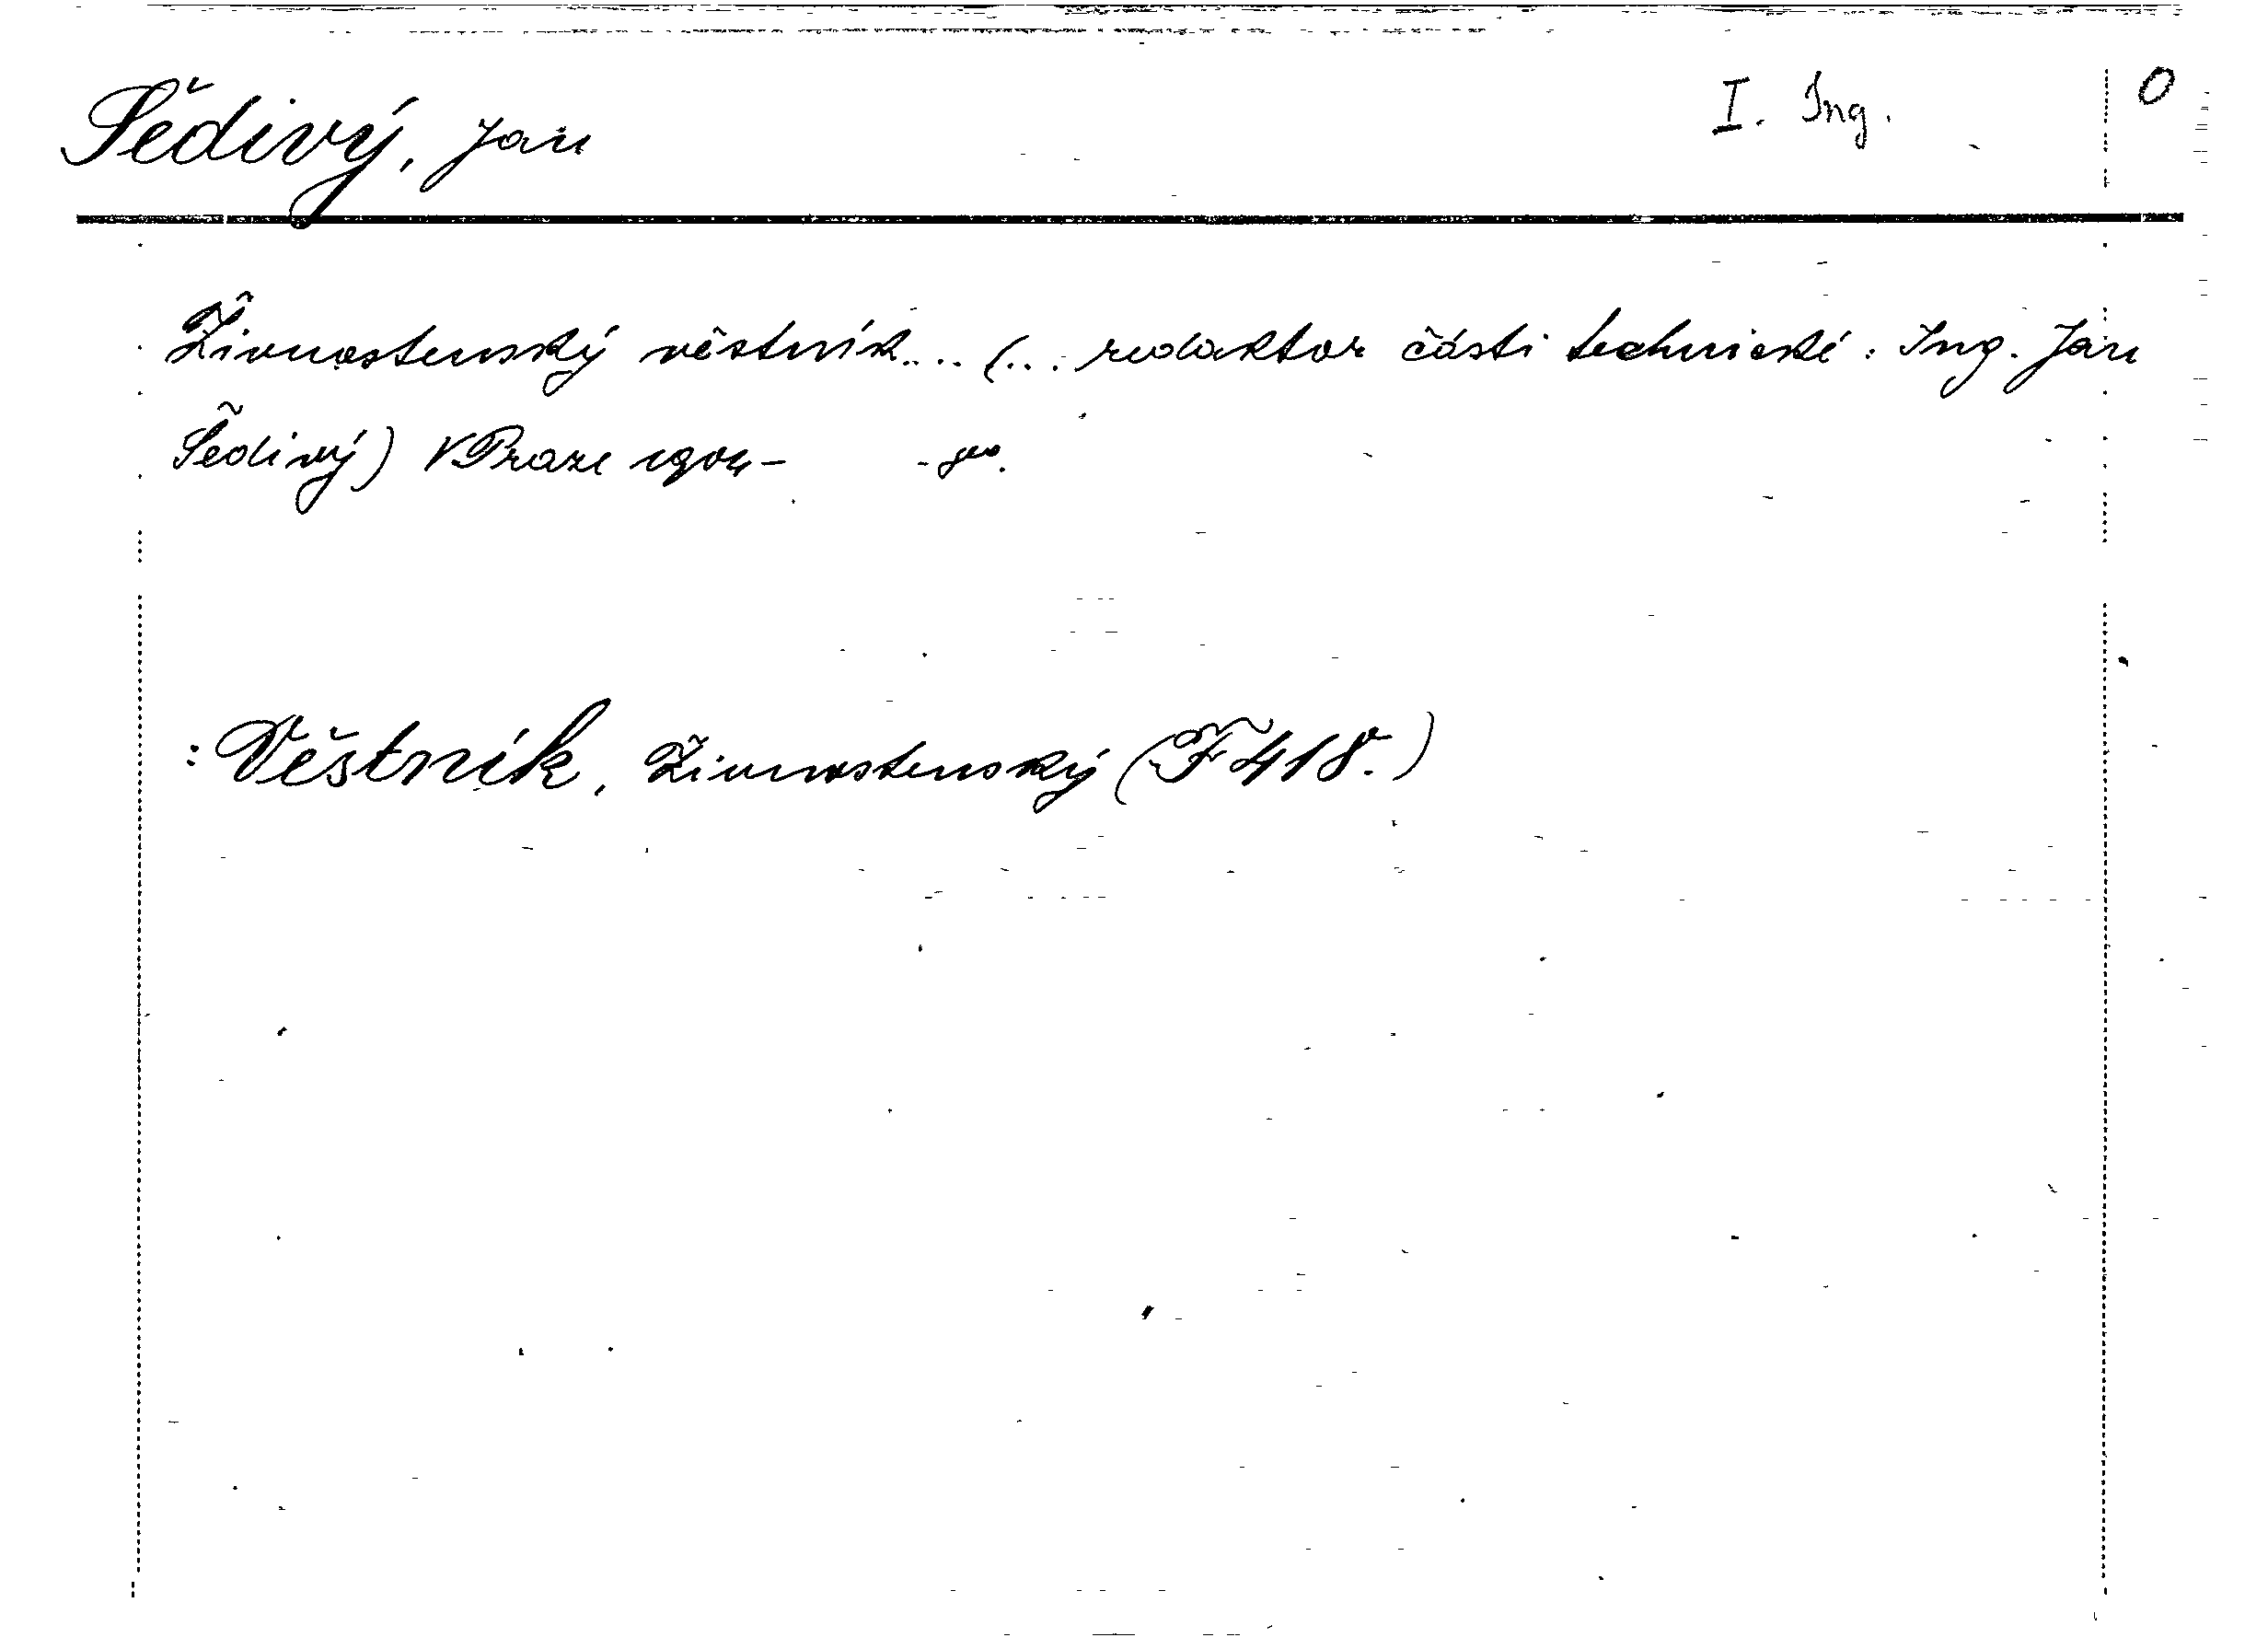 Šedivý, Jan I. Ing. O
Živnostenský věstník... (... redaktor části technické: Ing. Jan
Šedivý) V Praze 1904-
: Věstník, Živnostenský (F 418.)